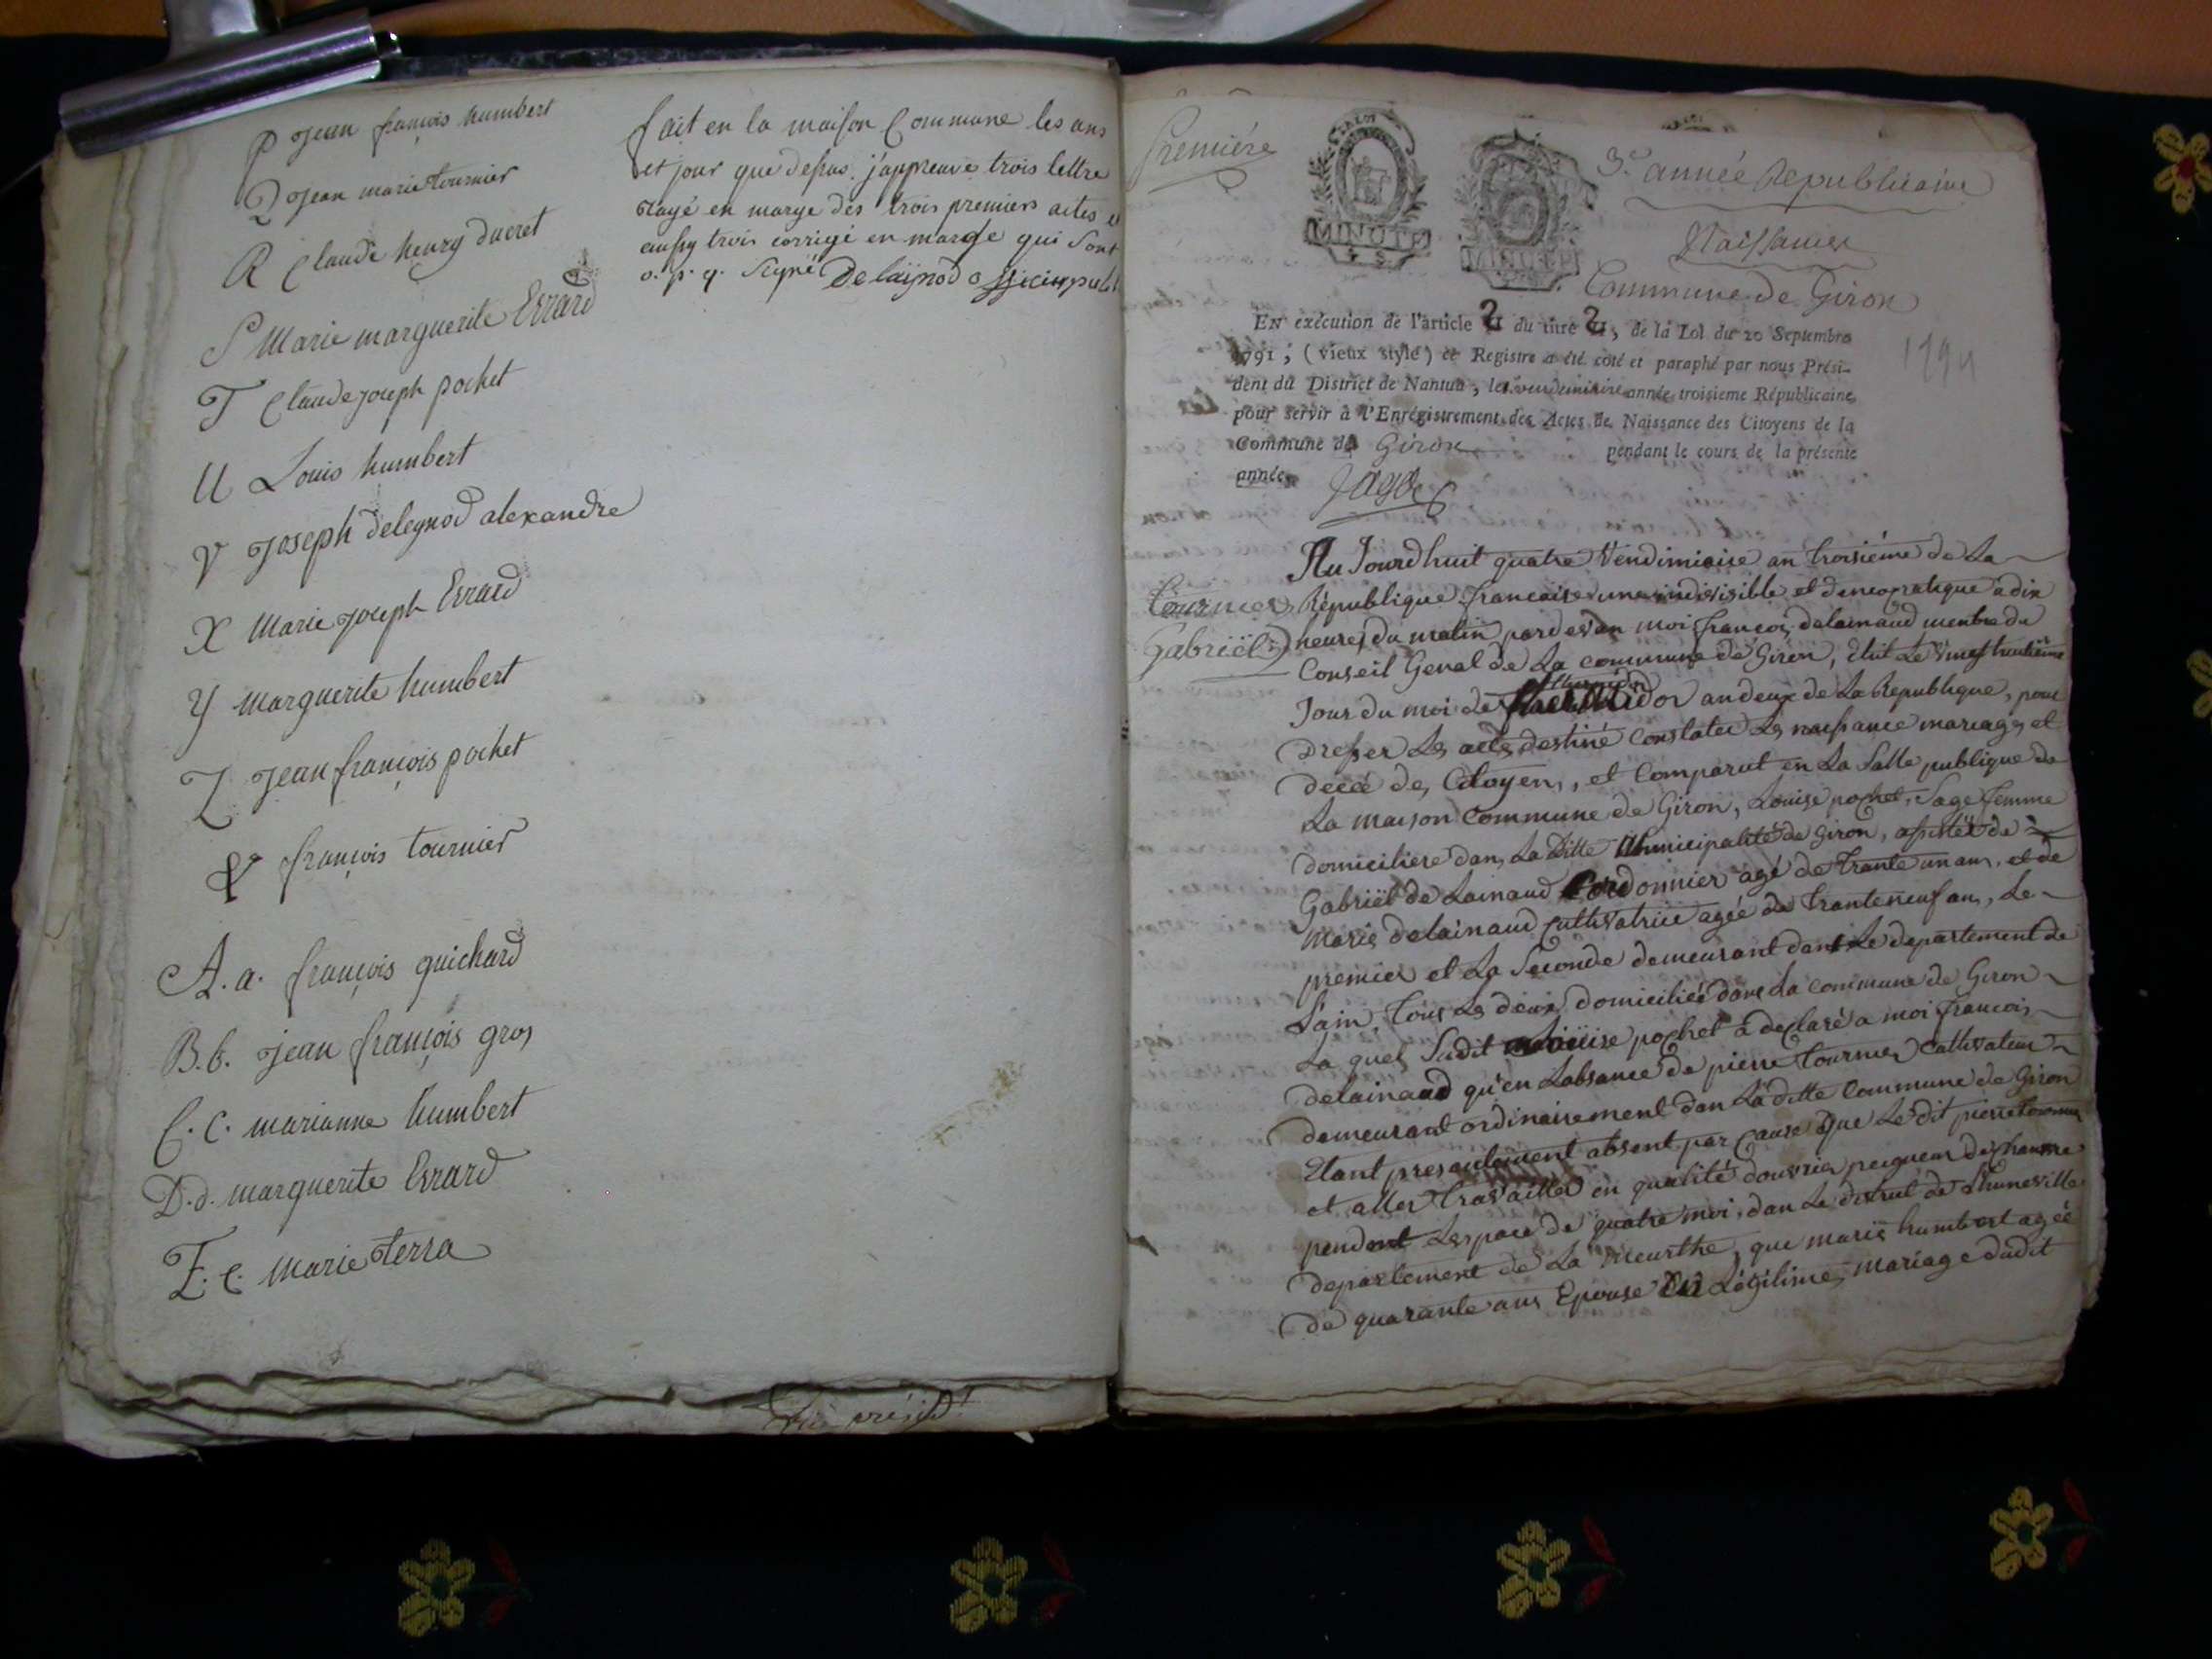 P Jean françois humbert
Q Jean marie tournier
R Claude henry ducret
S Marie marguerite Errard
T Claude joseph pochet
U Louis humbert
V Joseph delegnod alexandre
X Marie joseph Errard
Y marguerite humbert
Z Jean françois pochet
& françois tournier
A.a. françois guichard
B.b. jean françois gros
C.c. marianne humbert
D.d. marguerite Errard
E.e. marie terra
fait en la maison Commune les ans
et jour que dessus. j'appreuve trois lettre
rayé en marge des trois premiers actes et
aussy trois corrigé en marge qui sont
o. p. q. Signé Delaijnod
Première
MINUTE
MINUTE
3e année Republicaine
Naissances
Commune de Giron
1794
EN exécution de l'article 2 du titre 2, de la Loi du 20 Septembre
1791, (vieux style) ce Registre a été coté et paraphé par nous Prési-
dent du District de Nantua, le vendemiaire année troisieme Républicaine,
pour servir à l'Enrégistrement des Actes de Naissance des Citoyens de la
Commune de Giron pendant le cours de la présente
année.
Jagot
Tournier
Gabriël
Au Jourdhuit quatre Vendimiaire an troisiéme de La
République francaise une indivisible et democratique a dix
heures du matin pardevan moi francois delainaud menbre du
Conseil Genal de La commune de Giron, élut Le vingt huitième
Jour du moi de thermidor an deux de La Republique, pour
Dresser Les actes destiné Constater Les naissance mariages et
decé des Citoyens, et Comparut en La Salle publique de
La maison Commune de Giron, Louise pochet, Sage femme
domiciliere dans La Ditte Municipalité de Giron, assisté de
Gabriël de Lainaud Cordonnier agé de trante un ans, et de
Marie delainaud cultivatrice agée de trante neuf ans, Le
premier et La Seconde demeurant dans Le departement de
L'ain, Tous Les deux domiciliés dans La commune de Giron
La quel Sudit Louise pochet a declaré a moi francois
delainaud qu'en Labsance de pierre tournier Cultivateur
demeurant ordinairement dan La ditte Commune de Giron
Etant presentement absent par Cause que Le dit pierre tournier
et aller travailler en qualité douvrier peigneur de chanvre
pendent Lespace de quatre moi, dan Le distrut de Lhuneville
departement de La meurthe, que marie humbert agée
de quarante ans Epouse en Légitime mariage dudit